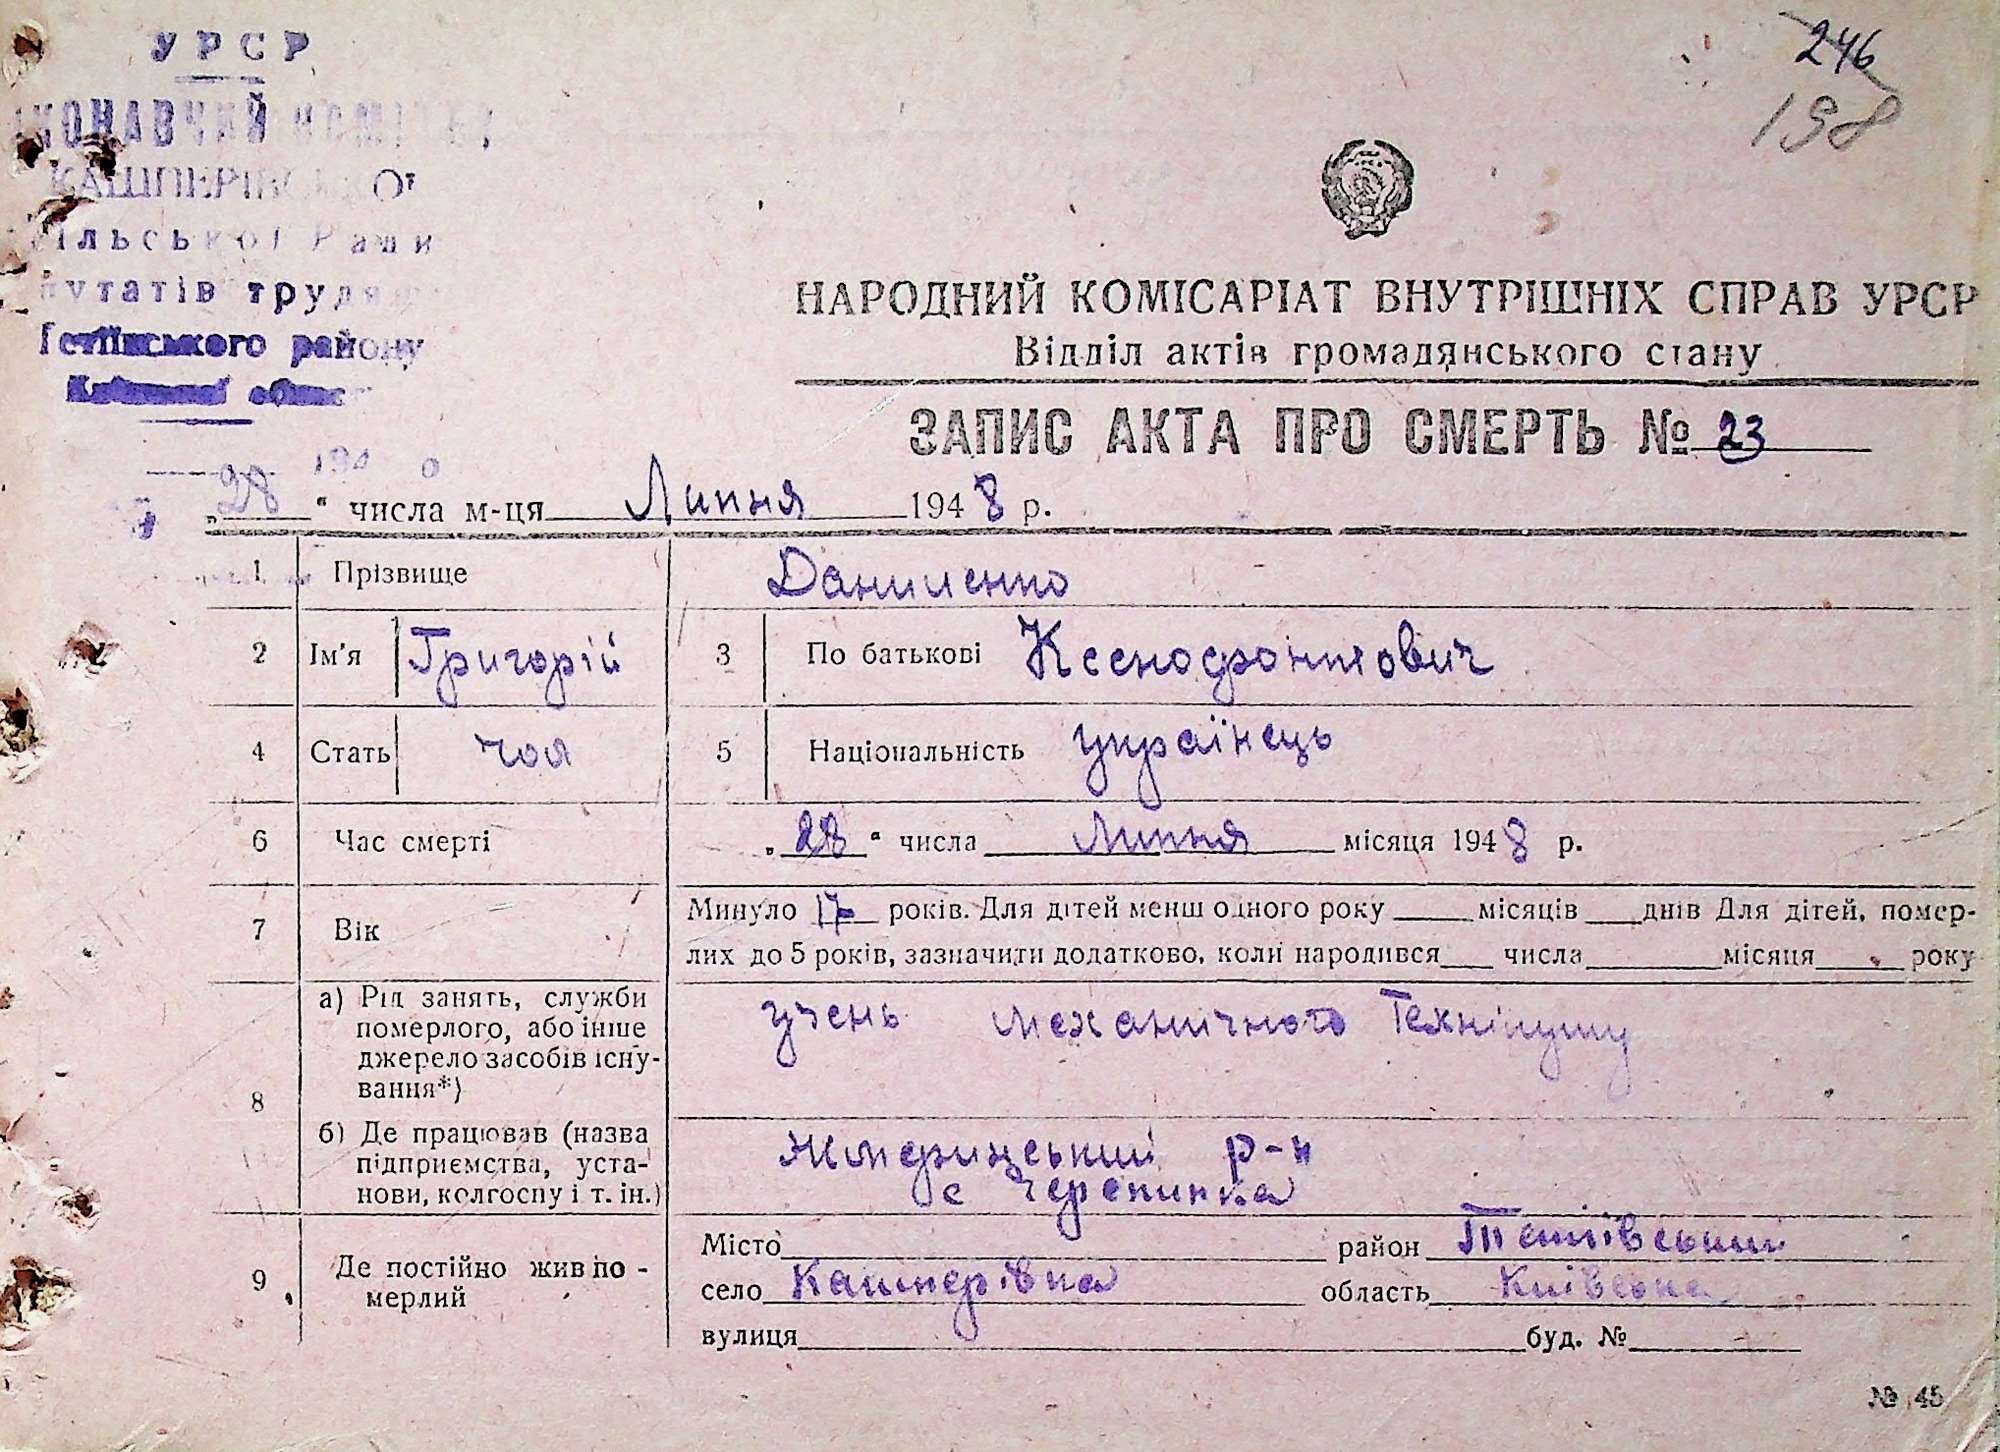 УРСР
246
198
КАШПЕРІВСЬКОЇ
сільської Ради
депутатів трудящих
Тетіївського району
НАРОДНИЙ КОМІСАРІАТ ВНУТРІШНІХ СПРАВ УРСР
Відділ актів громадянського стану
ЗАПИС АКТА ПРО СМЕРТЬ № 23
„28“ числа м-ця Липня 1948 р.
1 Прізвище Даниленко
2 Ім'я Григорій 3 По батькові Ксенофонтович
4 Стать чол 5 Національність українець
6 Час смерті „28“ числа Липня місяця 1948 р.
7 Вік Минуло 17 років. Для дітей менш одного року ____ місяців ____ днів Для дітей, помер-
лих до 5 років, зазначити додатково, коли народився ____ числа ____ місяця ____ року
8 а) Рід занять, служби
померлого, або інше
джерело засобів існу-
вання*)
учень механічного Технікуму
б) Де працював (назва
підприємства, уста-
нови, колгоспу і т. ін.)
р-н
с Черепинка
9 Де постійно жив по-
мерлий
Місто ____ район Тетіївський
село Кашперівка область Київська
вулиця ____ буд. № ____
№ 45